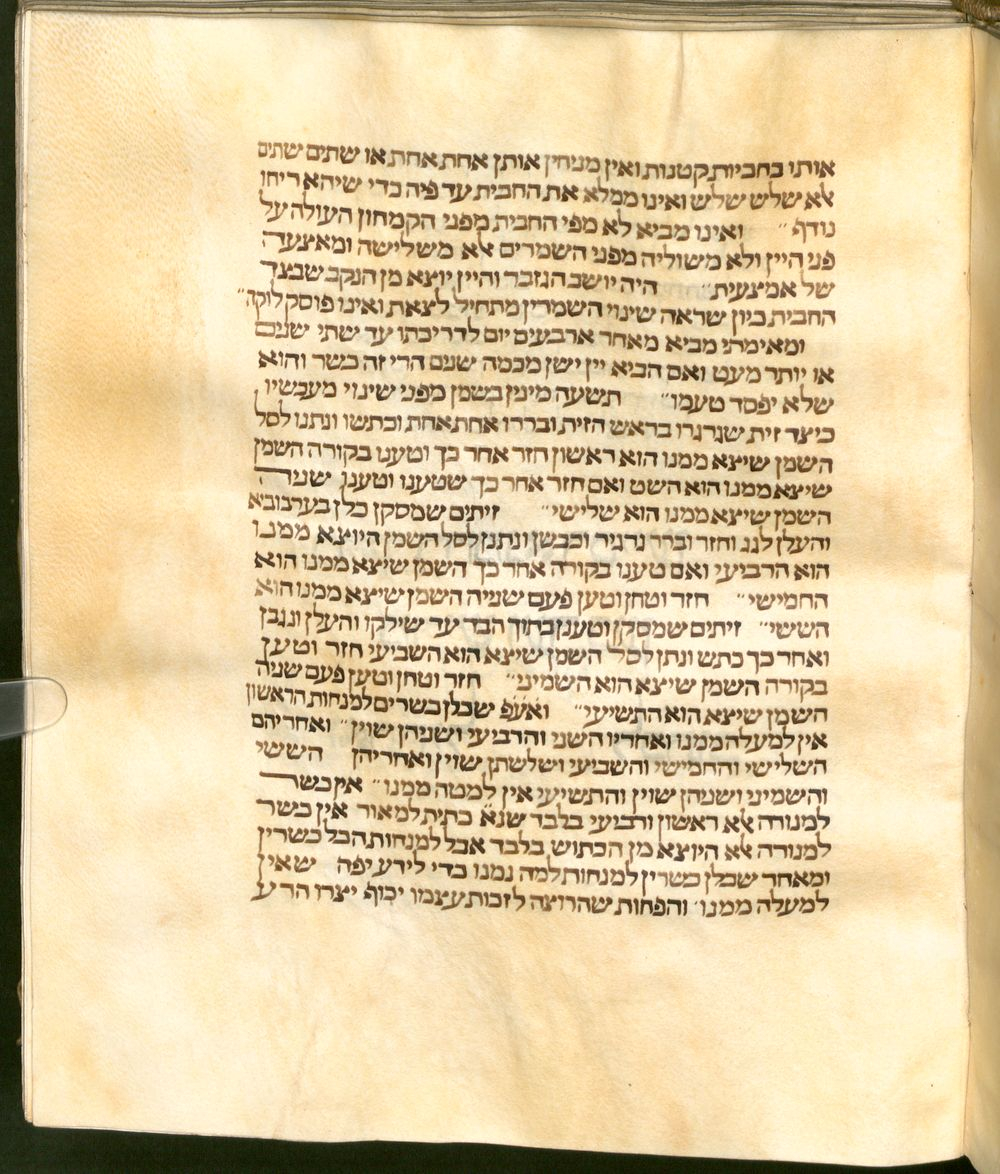 אותו בחביות קטנות ואין מניחין אותן אחת אחת או שתים שתים
אלא שלש שלש ואינו ממלא את החבית עד פיה כדי שיהא ריחו
נודף״ ואינו מביא לא מפי החבית מפני הקמחון העולה על
פני היין ולא משוליה מפני השמרים אלא משלישה ומאצעה
של אמצעית״ היה יושב הגזבר והיין יוצא מן הנקב שבצד
החבית כיון שראה שינוי השמרין מתחיל לצאת ואינו פוסק לוקה״
ומאימתי מביא מאחר ארבעים יום לדריכתו עד שתי שנים
או יותר מעט ואם הביא יין ישן מכמה שנים הרי זה כשר והוא
שלא יפסד טעמו״ תשעה מינין בשמן מפני שינוי מעשיו
כיצד זית שנרגרו בראש הזית ובררו אחת אחת וכתשו ונתנו לסל
השמן שיצא ממנו הוא ראשון חזר אחר כך וטענו בקורה השמן
שיצא ממנו הוא השט ואם חזר אחר כך שטענו וטענו שניה
השמן שיצא ממנו הוא שלישי״ זיתים שמסקן כלן בערבוביא
והעלן לגג וחזר וברר גרגיר וכבשן ונתנן לסל השמן היוצא ממנו
הוא הרביעי ואם טענו בקורה אחר כך השמן שיצא ממנו הוא
החמישי״ חזר וטחן וטען פעם שניה השמן שיצא ממנו הוא
הששי״ זיתים שמסקן וטענן בתוך הבד עד שילקו והעלן ונגבן
ואחר כך כתש ונתן לסל השמן שיצא הוא השביעי חזר וטען
בקורה השמן שיצא הוא השמיני״ חזר וטחן וטען פעם שניה
השמן שיצא הוא התשיעי״ ואעפ שכלן כשרים למנחות הראשון
אין למעלה ממנו ואחריו השני והרביעי ושניהן שוין״ ואחריהם
השלישי והחמישי והשביעי ושלשתן שוין ואחריהן הששי
והשמיני ושניהן שוין והתשיעי אין למטה ממנו״ אין כשר
למנורה אלא ראשון ורביעי בלבד שנא כתית למאור אין כשר
למנורה אלא היוצא מן הכתוש בלבד אבל למנחות הכל כשרין
ומאחר שכלן כשרין למנחות למה נמנו כדי לידע יפה שאין
למעלה ממנו׳ והפחות שהרוצה לזכות עצמו יכוף יצרו הרע